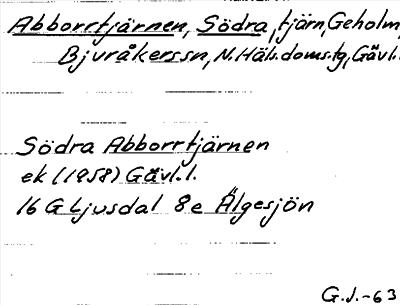 Abborrtjärnen, Södra, tjärn, Geholm,
Bjuråkerssn, N. Häls. doms.tg, Gävl.
Södra Abborrtjärnen
ek (1958) Gävl.l.
16 G Ljusdal 8e Älgesjön
G.J.-63